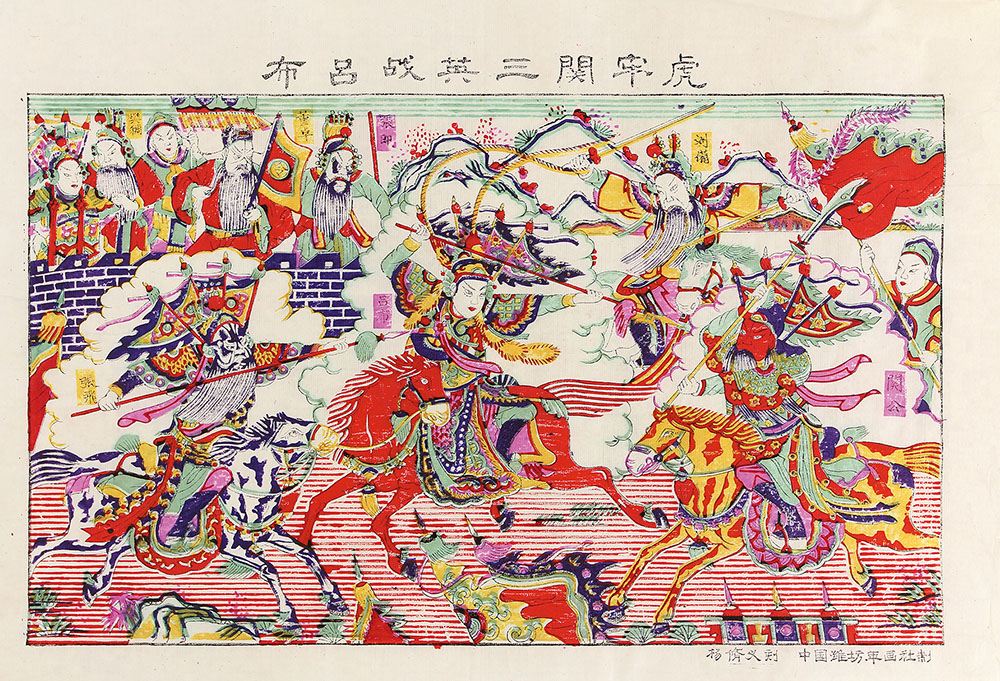 虎牢関三英战呂布
董卓
刘備
呂布
張飛
関公
杨脩义刻 中国潍坊年画社制